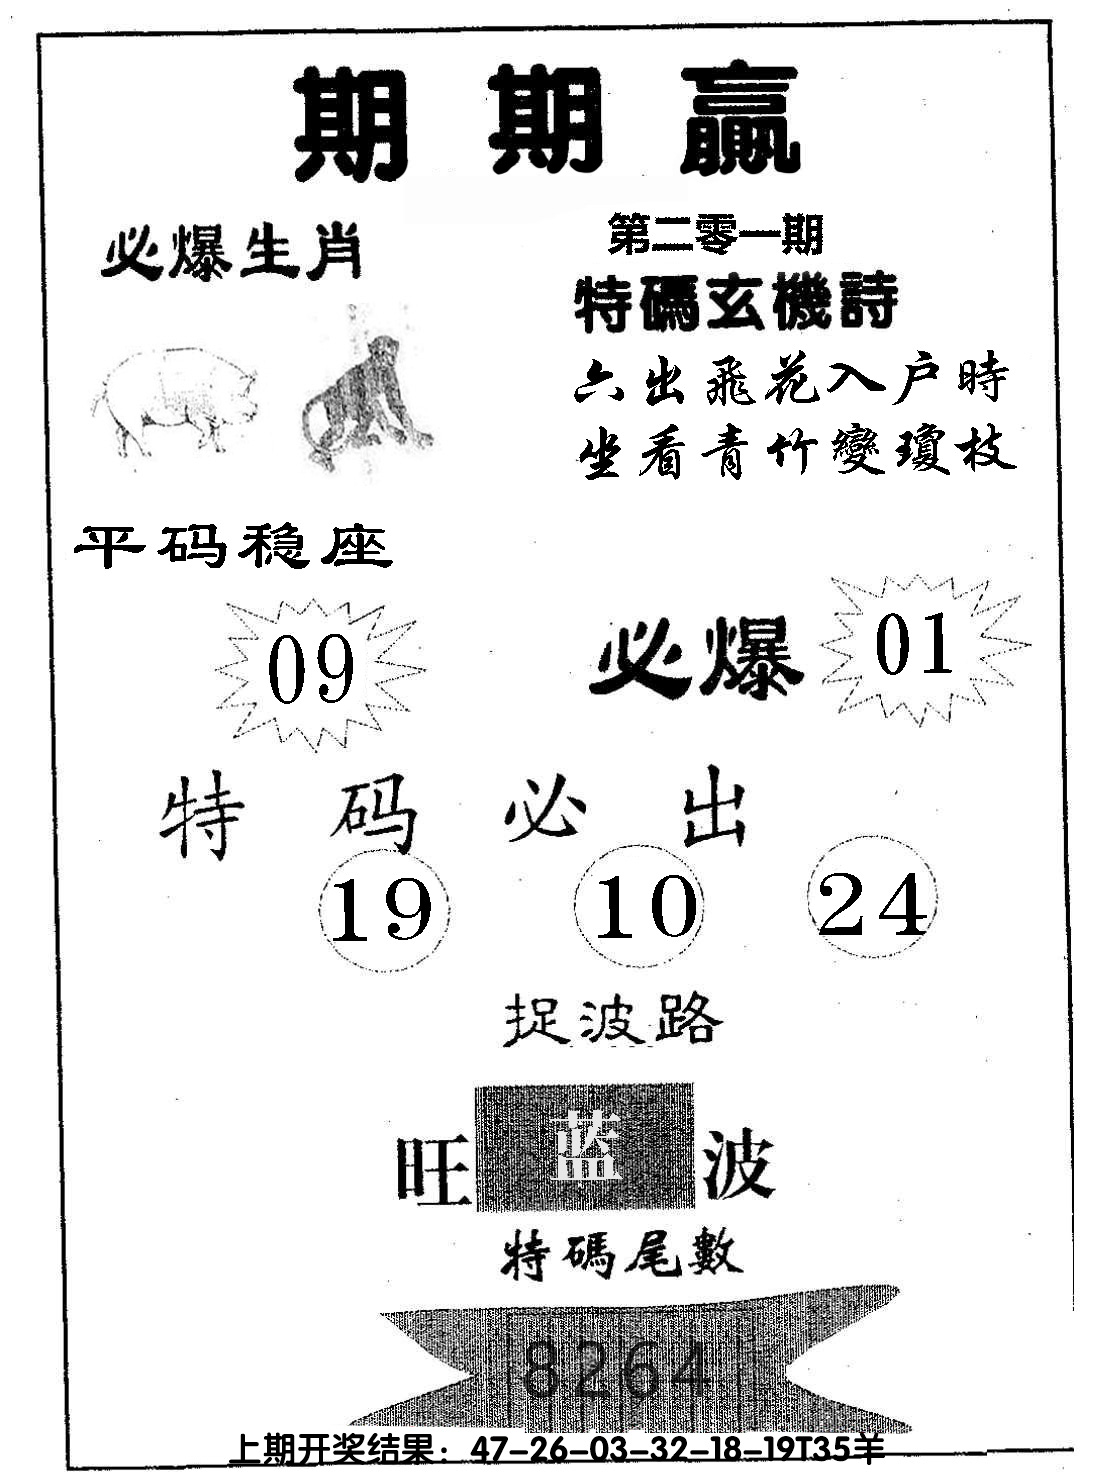 期期贏
必爆生肖
第二零一期
特碼玄機詩
六出飛花入户時
坐看青竹變瓊枝
平码稳座
09
必爆 01
特码必出
19 10 24
捉波路
旺 蓝 波
特碼尾數
8264
上期开奖结果：47-26-03-32-18-19T35羊